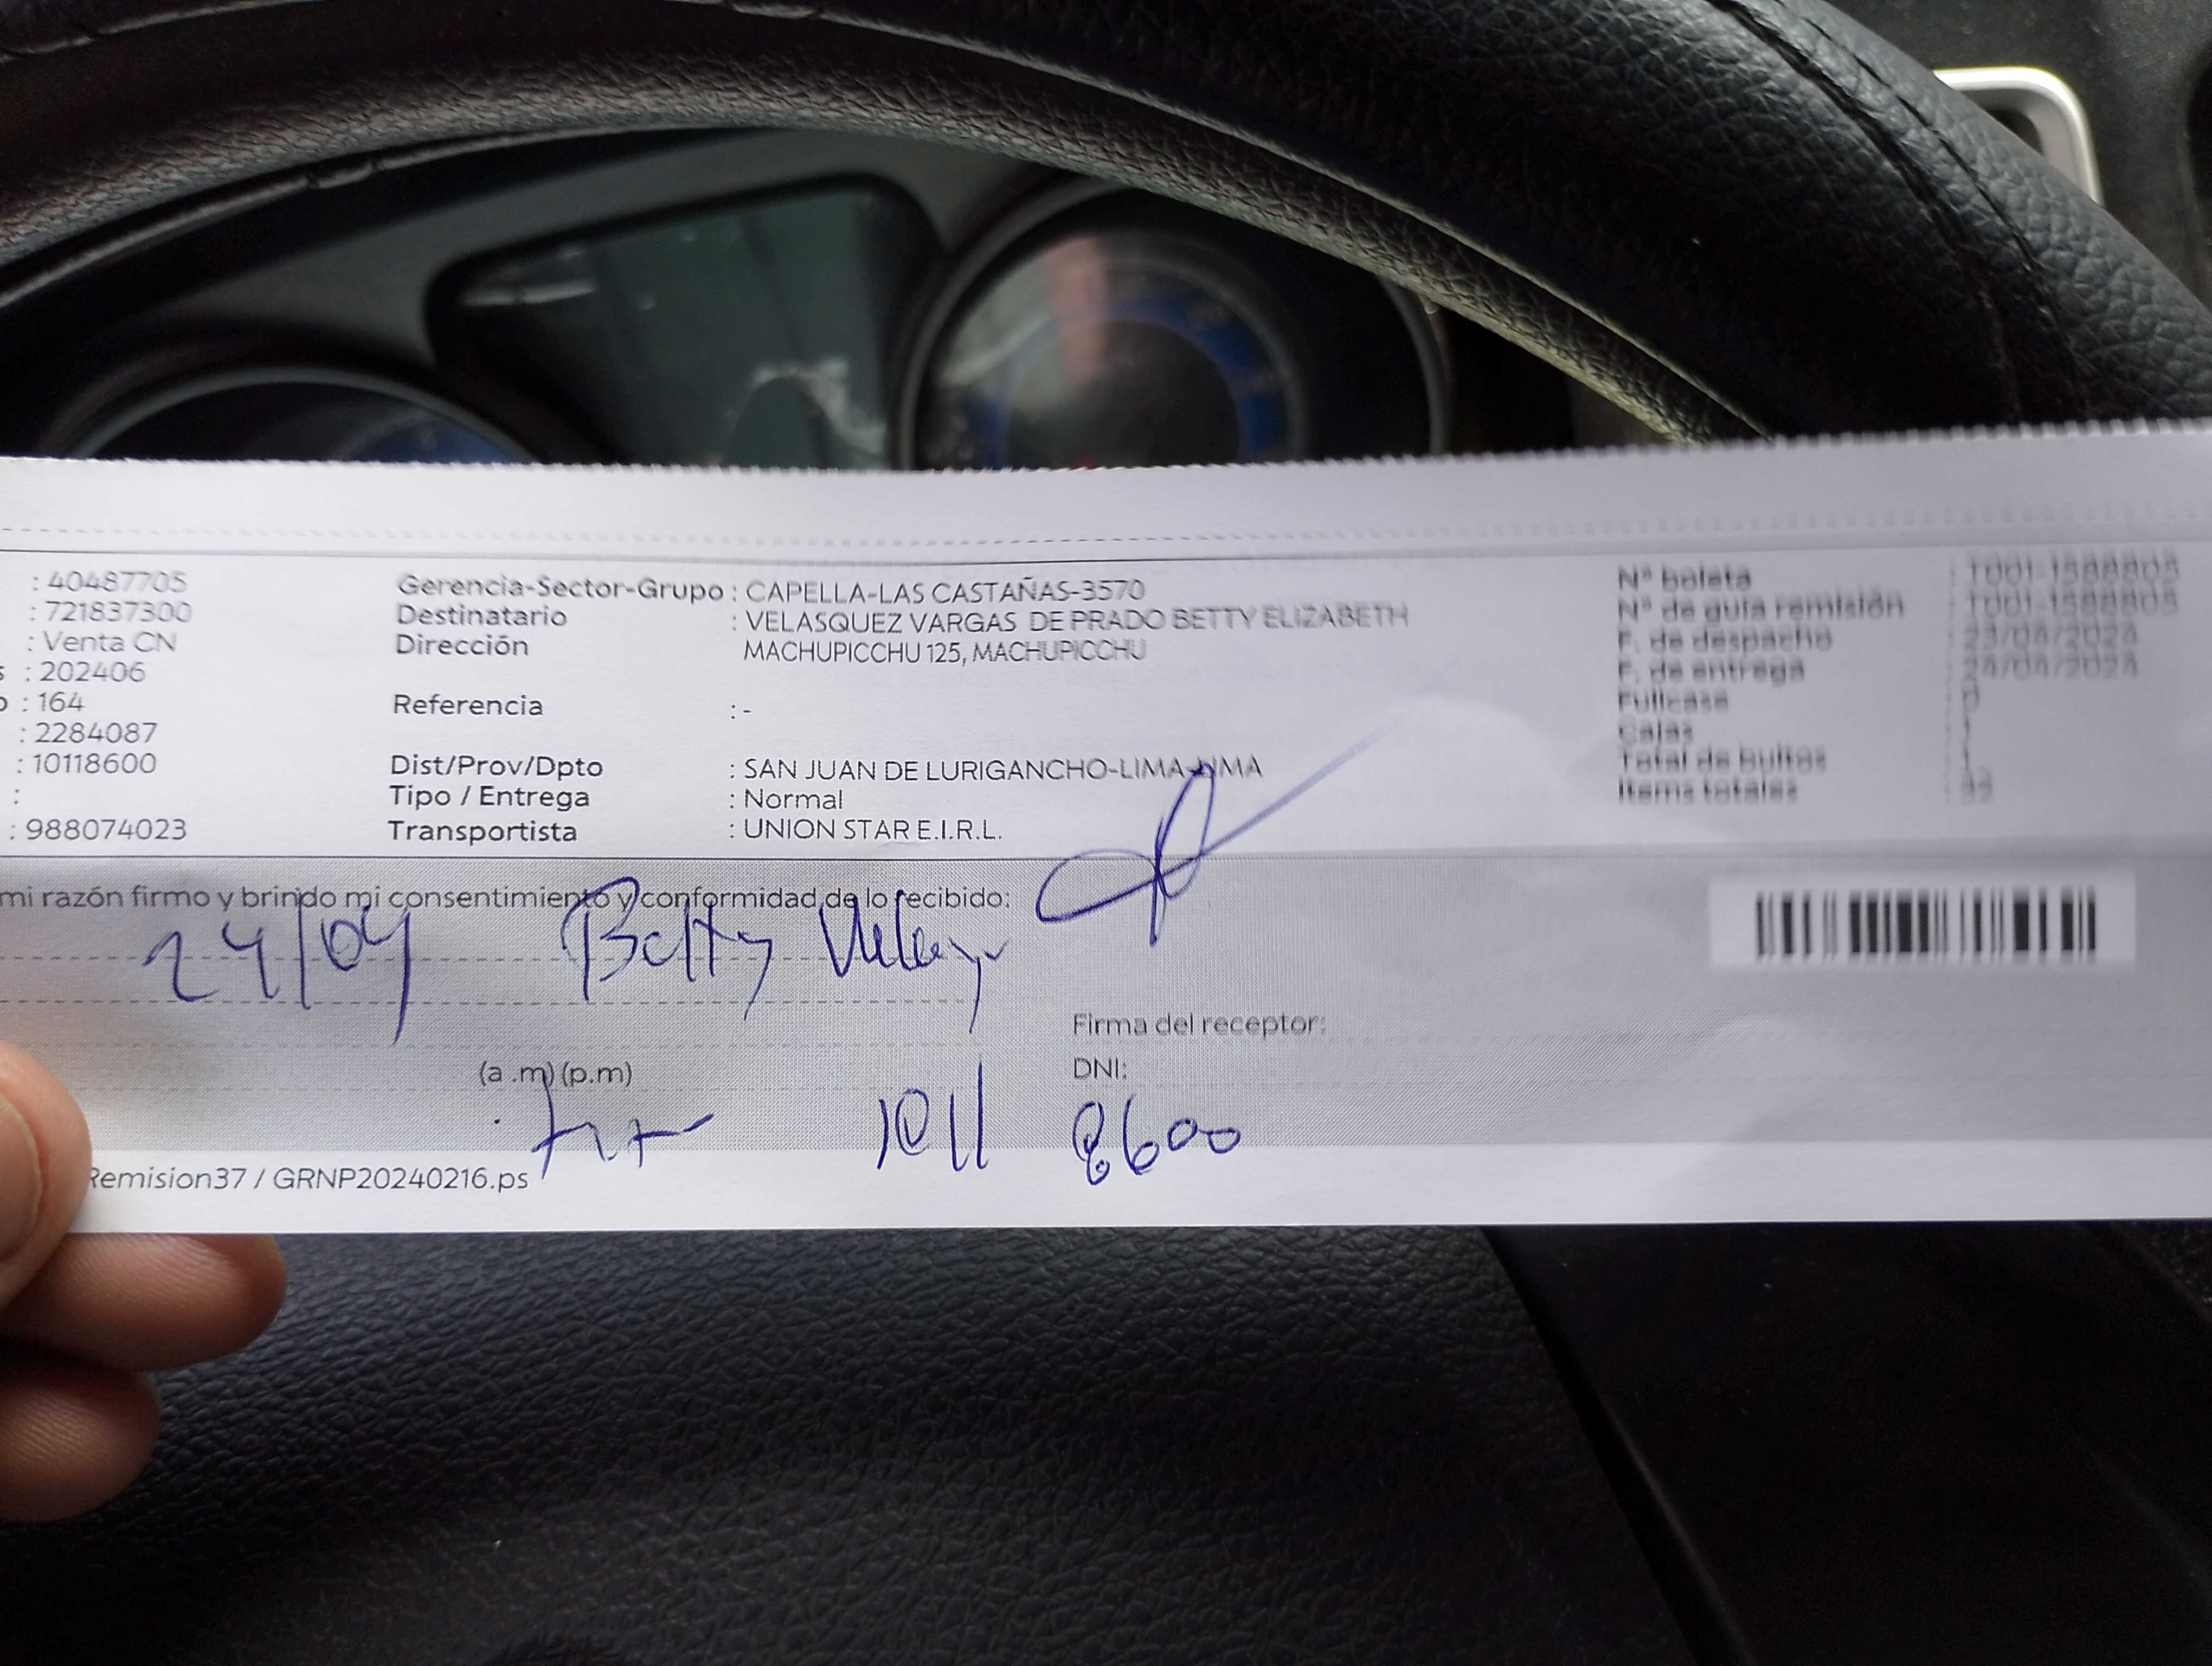 : 40487705 Gerencia-Sector-Grupo : CAPELLA-LAS CASTAÑAS-3570 Nº boleta : T001-1588805
: 721837300 Destinatario : VELASQUEZ VARGAS DE PRADO BETTY ELIZABETH Nº de guía remisión : T001-1588805
: Venta CN Dirección MACHUPICCHU 125, MACHUPICCHU F. de despacho : 23/04/2024
s : 202406 F. de entrega : 24/04/2024
o : 164 Referencia : - Fullcase : 0
: 2284087 Cajas : 1
: 10118600 Dist/Prov/Dpto : SAN JUAN DE LURIGANCHO-LIMA-LIMA Total de bultos : 1
: Tipo / Entrega : Normal Items totales : 32
: 988074023 Transportista : UNION STAR E.I.R.L.
mi razón firmo y brindo mi consentimiento y conformidad de lo recibido:
24/04 Betty
Firma del receptor:
(a .m) (p.m) DNI:
1011 8600
Remision37 / GRNP20240216.ps